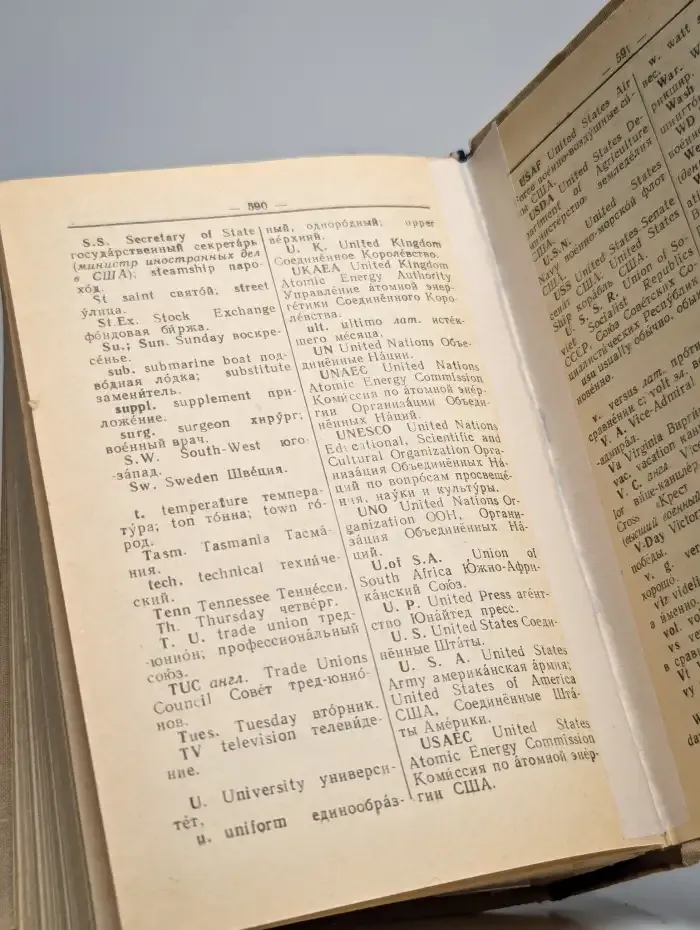 — 590 —
S.S. Secretary of State
госуда́рственный секрета́рь
(министр иностранных дел
в США); steamship паро-
хо́д.
St saint свято́й; street
у́лица.
St.Ex. Stock Exchange
фо́ндовая би́ржа.
Su.; Sun. Sunday воскре-
се́нье.
sub. submarine boat под-
во́дная ло́дка; substitute
замени́тель.
suppl. supplement при-
ложе́ние.
surg. surgeon хиру́рг;
вое́нный врач.
S.W. South-West юго-
-за́пад.
Sw. Sweden Шве́ция.
t. temperature темпера-
ту́ра; ton то́нна; town го́-
род.
Tasm. Tasmania Тасма́-
ния.
tech. technical техни́че-
ский.
Tenn Tennessee Теннесси.
Th. Thursday четве́рг.
T. U. trade union тред-
-юнио́н; профессиона́льный
сою́з.
TUC англ. Trade Unions
Council Сове́т тред-юнио́-
нов.
Tues. Tuesday вто́рник.
TV television телеви́де-
ние.
U. University универси-
те́т.
u. uniform единообра́з-
ный, одноро́дный; upper
ве́рхний.
U. K. United Kingdom
Соединённое Короле́вство.
UKAEA United Kingdom
Atomic Energy Authority
Управле́ние а́томной энер-
ге́тики Соединённого Коро-
ле́вства.
ult. ultimo лат. исте́к-
шего ме́сяца.
UN United Nations Объе-
динённые На́ции.
UNAEC United Nations
Atomic Energy Commission
Коми́ссия по а́томной эне́р-
гии Организа́ции Объеди-
нённых На́ций.
UNESCO United Nations
Educational, Scientific and
Cultural Organization Орга-
низа́ция Объединённых На́-
ций по вопро́сам просвеще́-
ния, нау́ки и культу́ры.
UNO United Nations Or-
ganization ООН, Органи-
за́ция Объединённых На́-
ций.
U.of S.A. Union of
South Africa Ю́жно-Афри-
ка́нский Сою́з.
U. P. United Press аге́нт-
ство Юна́йтед пресс.
U. S. United States Соеди-
нённые Шта́ты.
U. S. A. United States
Army америка́нская а́рмия;
United States of America
США, Соединённые Шта́-
ты Аме́рики.
USAEC United States
Atomic Energy Commission
Коми́ссия по а́томной эне́р-
гии США.
— 591 —
USAF United States Air
Force вое́нно-возду́шные си́-
лы США.
USDA United States De-
partment of Agriculture
министе́рство земледе́лия
США.
U.S.N. United States
Navy вое́нно-морско́й флот
США.
USS United States Senate
сена́т США; United States
Ship кора́бль США.
U. S. S. R. Union of So-
viet Socialist Republics
СССР, Сою́з Сове́тских Со-
циалисти́ческих Респу́блик
usu usually обы́чно, обык-
нове́нно.
v. versus лат. про́тив
сравне́нии с; volt эл.
V. A. Vice-Admiral
-адмира́л.
Va Virginia
vac. vacation
V. C. англ
ви́це-ка́нцлер
Cross „Крест
(высший военный
V-Day Victory
побе́ды.
v. g. very
хорошо́.
viz
а и́менно.
vol.
vs
в
Vt
w. watt
вес.
War.
Wash
WD